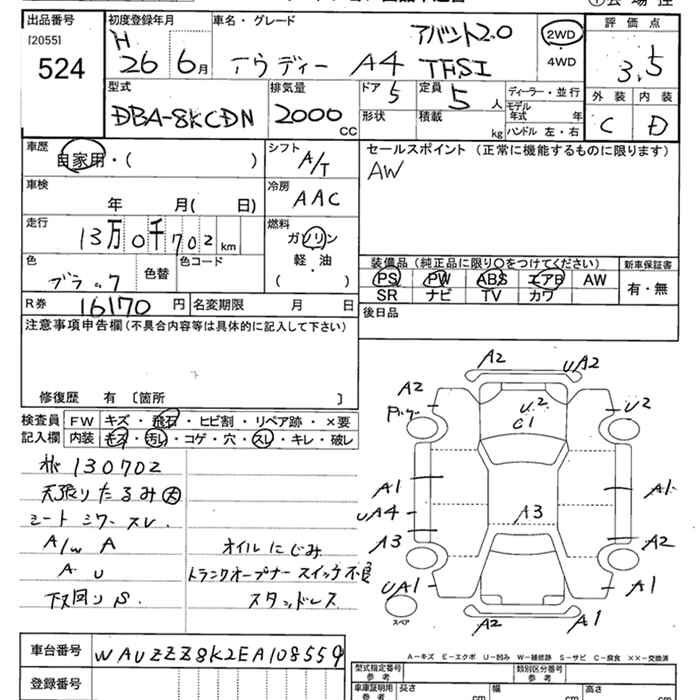 出品番号 初度登録年月 車名・グレード 評価点
[2055] H アバント2.0 2WD
524 26 6月 アウディー A4 TFSI ・4WD 3.5
型式 排気量 ドア 5 定員 5人 ディーラー・並行 外装 内装
DBA-8KCDN 2000 CC 形状 積載 kg モデル年式 年 ハンドル 左・右 C D
車歴 自家用・( ) シフト A/T セールスポイント (正常に機能するものに限ります)
車検 年 月( 日) 冷房 AAC AW
走行 13万0千702km 燃料 ガソリン 軽・油 ( )
色 ブラック 色替 色コード
装備品 (純正品に限り○をつけてください) 新車保証書
PS PW ABS エアB AW 有・無
SR ナビ TV カワ
R券 16170 円 名変期限 月 日 後日品
注意事項申告欄 (不具合内容等は具体的に記入して下さい)
修復歴 有 〔箇所 〕
検査員 FW キズ・飛石・ヒビ割・リペア跡・×要
記入欄 内装 キズ・汚レ・コゲ・穴・スレ・キレ・破レ
130702
天張りたるみ大
シート シワ スレ.
A/W A オイルにじみ
A U トランクオープナー スイッチ不良
下回り S. スタッドレス
A2 UA2
A2 U2 U2
C1
A1 A1
UA4 A3
A3 A2
UA1 A1
スペア A2 A1
A-キズ E-エクボ U-凹み W-補修跡 S-サビ C-腐食 ××-交換済
車台番号 WAUZZZ8K2EA108559
型式指定番号 参考 類別区分番号 参考
登録番号 車庫証明用 参考 長さ cm 幅 cm 高さ cm